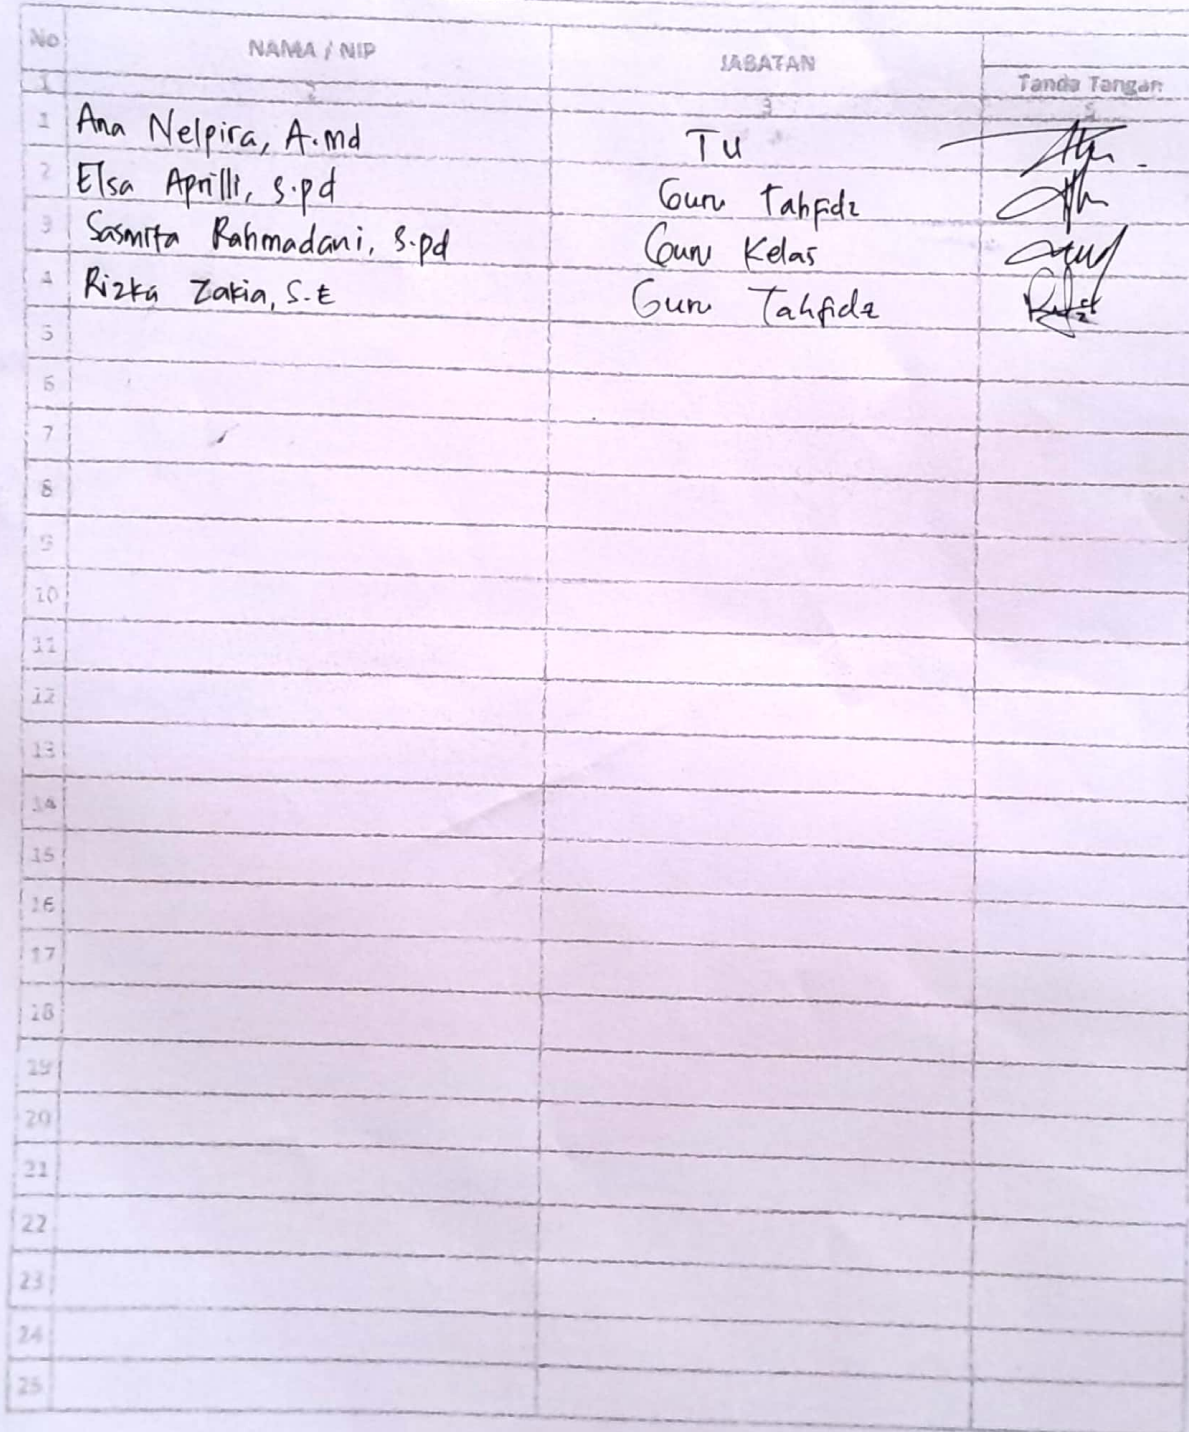 No NAMA / NIP JABATAN
Tanda Tangan
1 2 3 5
1 Ana Nelpira, A.Md TU
2 Elsa Aprilli, S.pd Guru Tahfidz
3 Sasmita Rahmadani, S.pd Guru Kelas
4 Rizka Zakia, S.E Guru Tahfidz
5
6
7
8
9
10
11
12
13
14
15
16
17
18
19
20
21
22
23
24
25